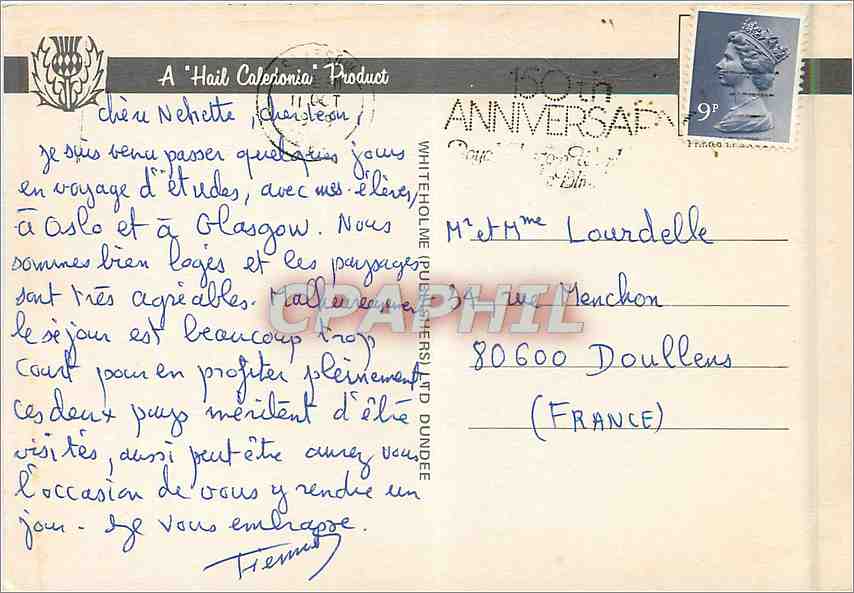 A "Hail Caledonia" Product
11 OCT
150th
ANNIVERSARY
9P
Chère Nénette, cher Jean,
Je suis venu passer quelques jours
en voyage d'études, avec mes élèves,
à Oslo et à Glasgow. Nous
sommes bien logés et les paysages
sont très agréables. Malheureusement
le séjour est beaucoup trop
court pour en profiter pleinement
ces deux pays méritent d'être
visités, aussi peut-être aurez vous
l'occasion de vous y rendre un
jour. Je vous embrasse.
WHITEHOLME (PUBLISHERS) LTD. DUNDEE
Mr et Mme Lourdelle
34, rue Menchon
80600 Doullens
(FRANCE)
CPAPHIL